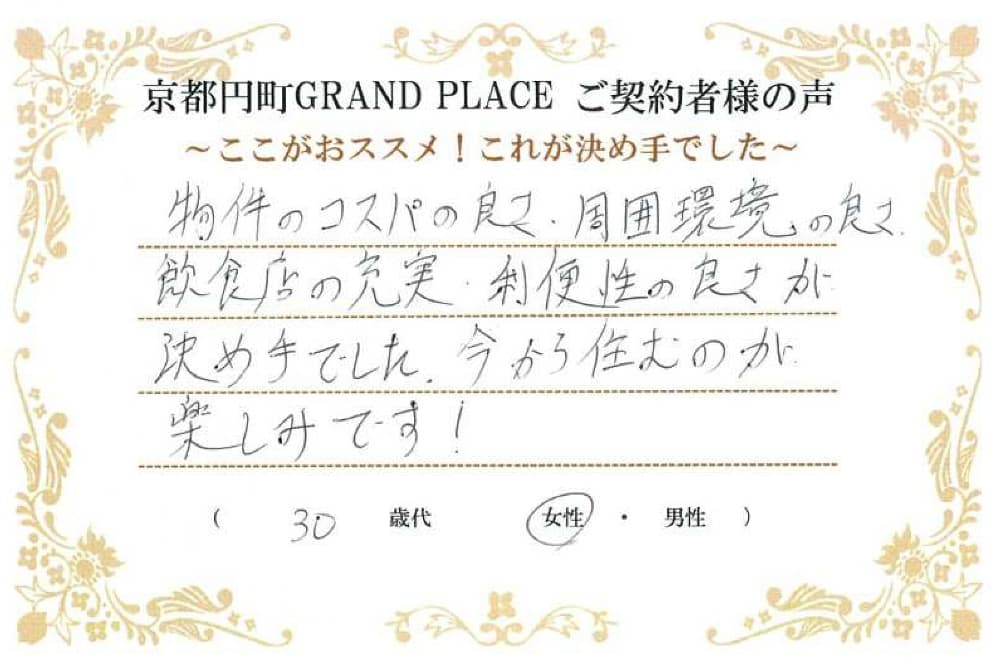 京都円町GRAND PLACE ご契約者様の声
～ここがおススメ！これが決め手でした～
物件のコスパの良さ・周囲環境の良さ.
飲食店の充実・利便性の良さが
決め手でした. 今から住むのが
楽しみです！
（ 30 歳代 女性 ・ 男性 ）